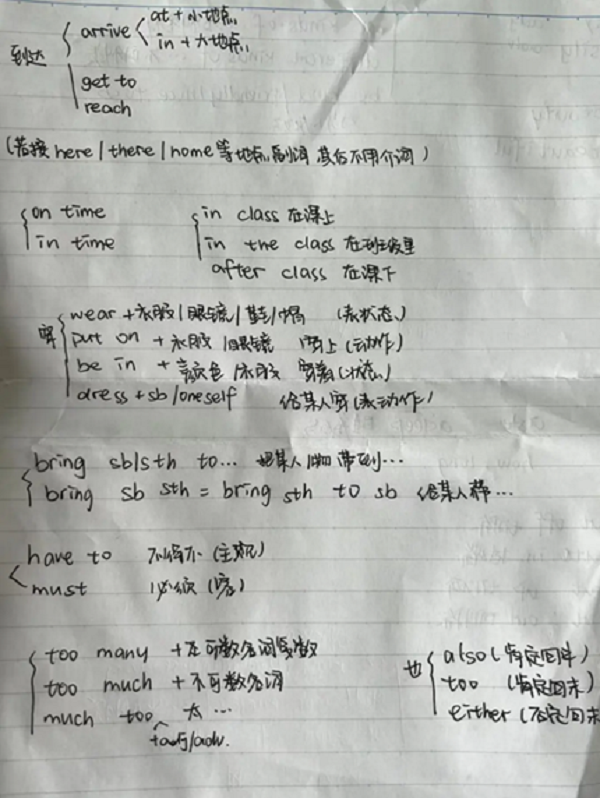 到达 arrive at + 小地点
in + 大地点
get to
reach
(若接 here / there / home 等地点副词 其后不用介词)
on time in class 在课上
in time in the class 在班级里
after class 在课下
穿 wear + 衣服 / 眼镜 / 鞋 / 帽 (表状态)
put on + 衣服 / 眼镜 穿上 (动作)
be in + 颜色 / 衣服 穿着 (状态)
dress + sb / oneself 给某人穿 (表动作)
bring sb/sth to... 把某人/物 带到...
bring sb sth = bring sth to sb 给某人带...
have to 不得不 (客观)
must 必须
too many + 可数名词复数 也 also (肯定句中)
too much + 不可数名词 too (肯定句末)
much too 太 ... either (否定句末
+adj/adv.